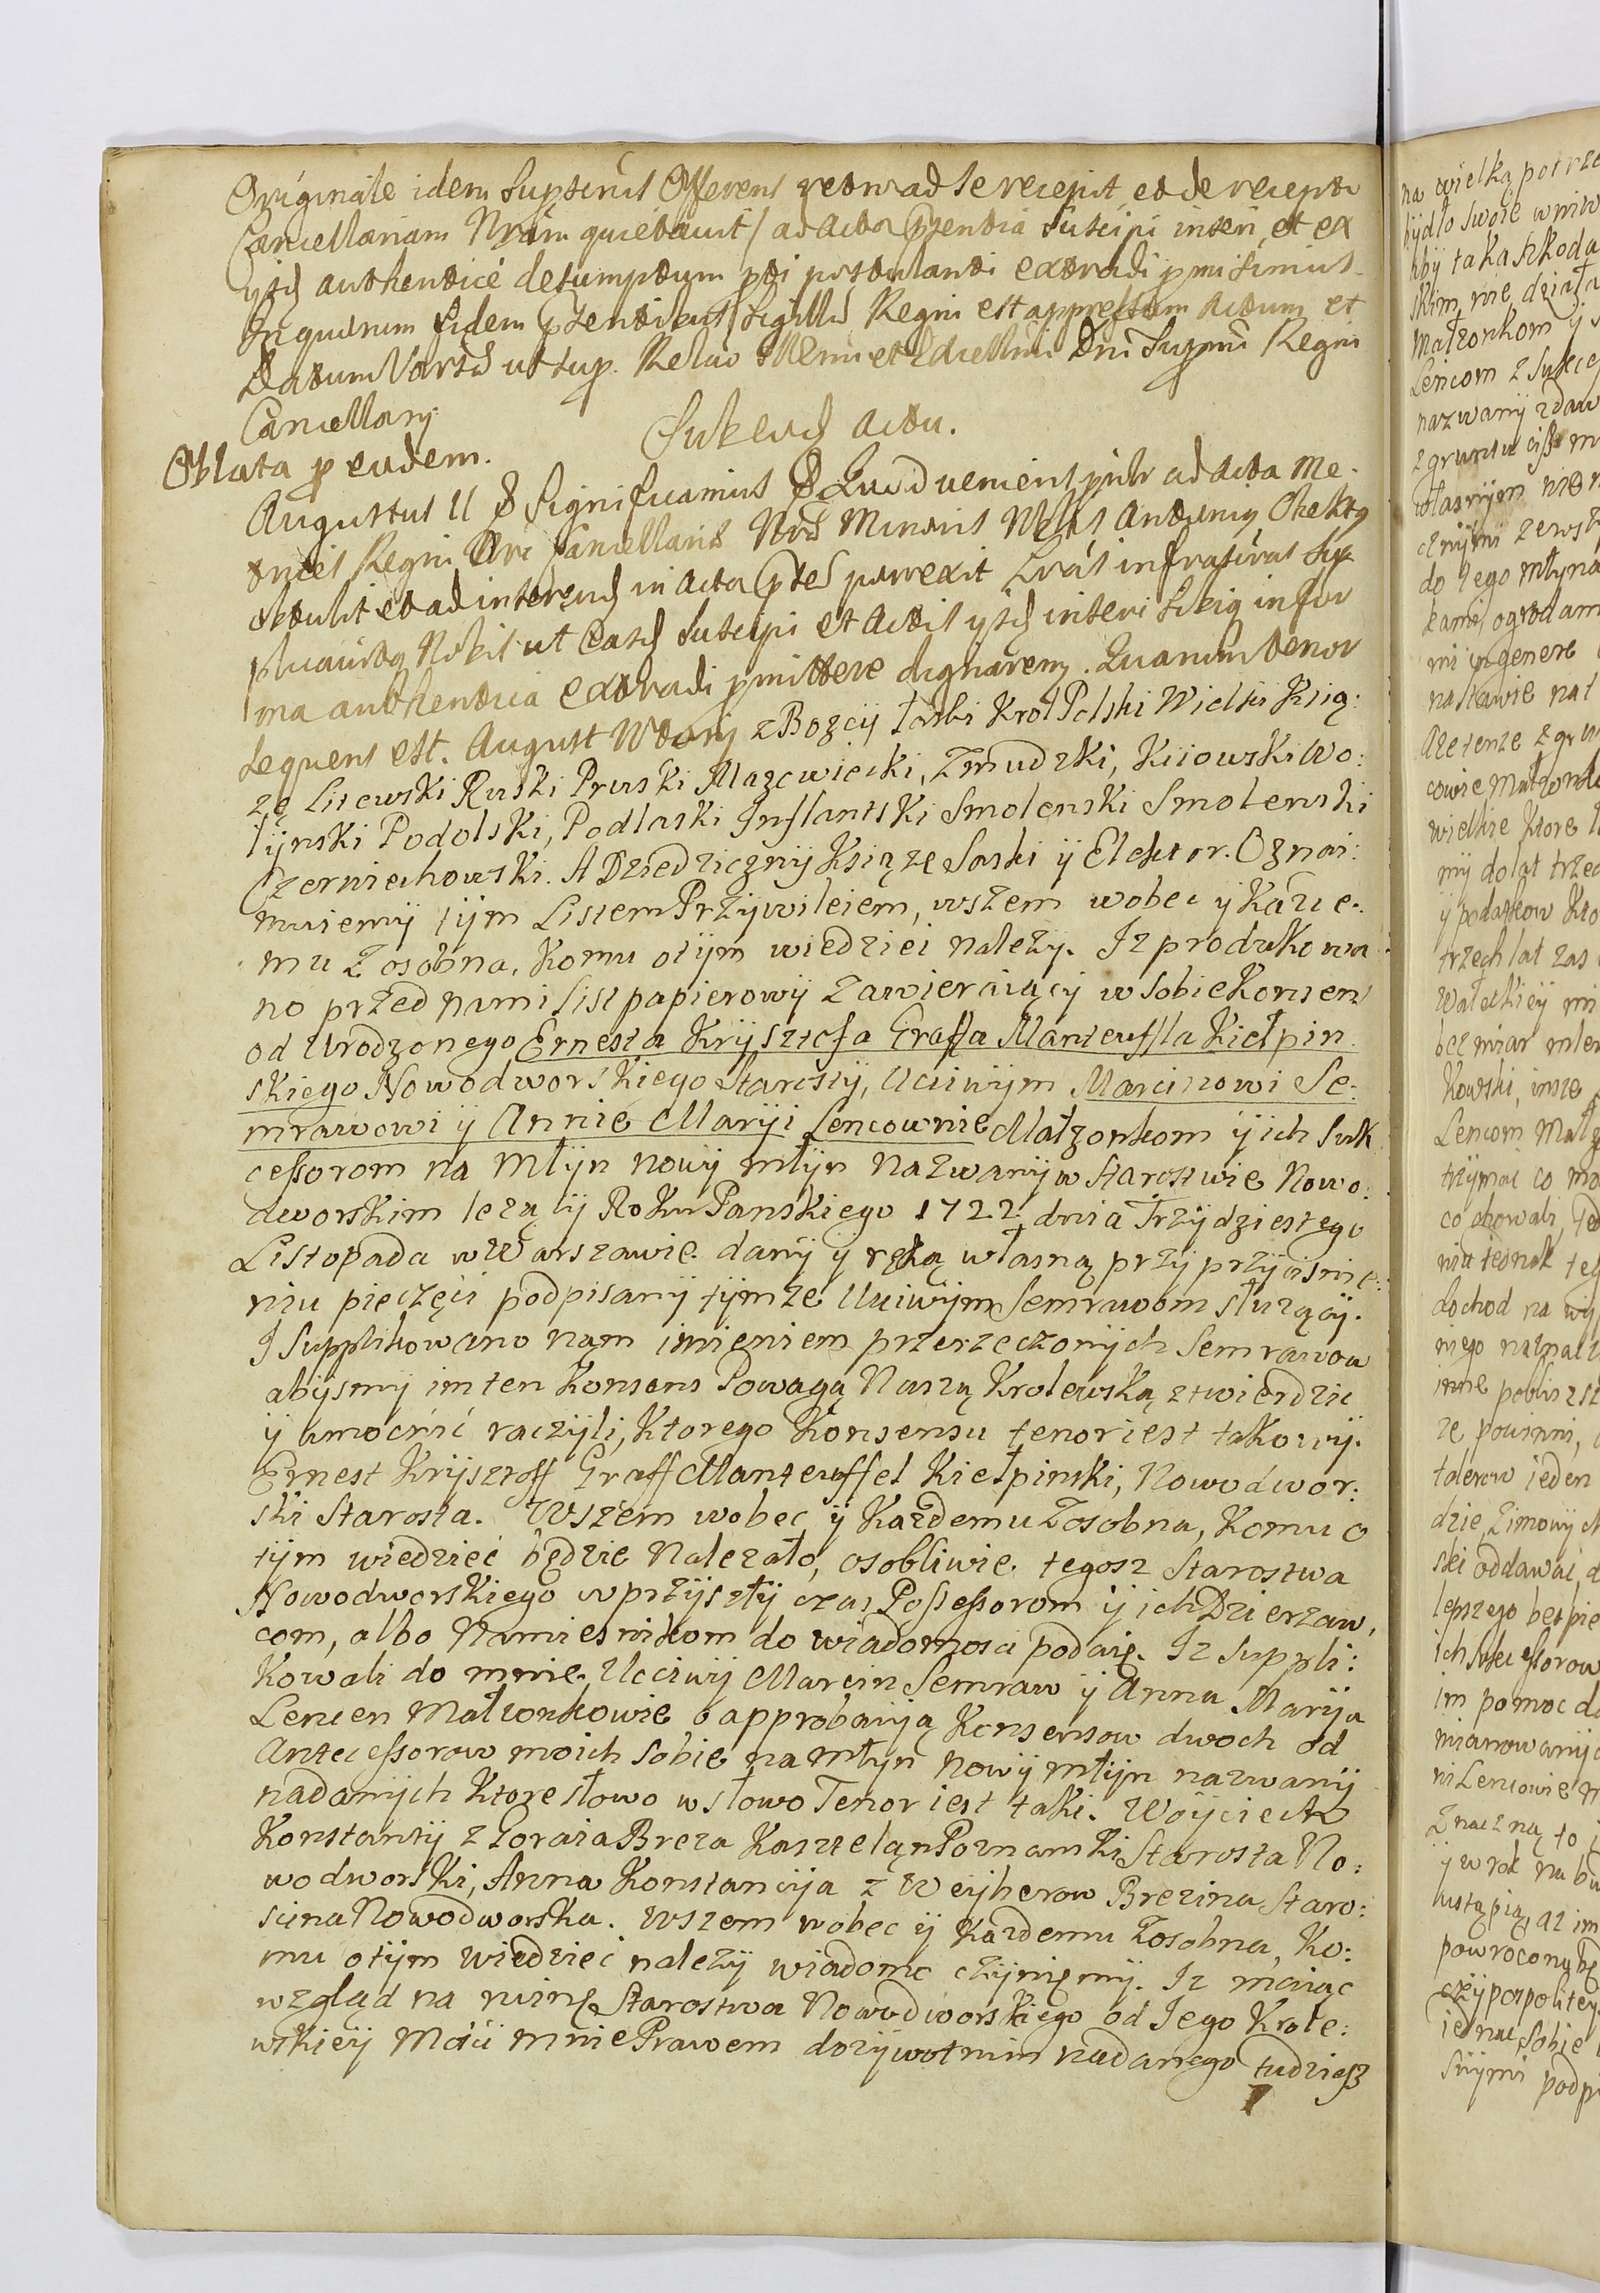 Originale idem Supterius Offerens retro ad se recepit, et de recepto
Cancellariam Nram quietavit / ad Acta Pntia Suscipi inseri, et ex
ysd authentice desumptum pti postulanti extradi pmisimus.
In quorum fidem Pntibus Sigillu Regni est appressum Actum et
Datum Vars ut sup. Relao Illmi et Excellmi Dni Supmi Regni
Cancellary
Sukces Actu.
Oblata p eudem.
Augustus II Significamus Quod veniens psnlr ad Acta Me-
trices Regni Cancellaris Nras Minoris Antoniy
obtulit et ad inserend in Acta porrexit Lras infrascras Sup
plicavitq Nobis ut Easd Suscipi et Actis ysd inseri Subiq in for
ma authentica extradi pmittere dignaremr. Quarum tenor
sequens est. August Wtory z Bozey łaski Krol Polski Wielki Xią:
zę Litewski Ruski Pruski Mazowiecki, Zmudzki, Kiiowski Wo:
łyński Podolski, Podlaski Inflantski Smolenski Smolenski
Czerniechowski. A Dziedziczny Xiąze Saski ÿ Elektor. Oznai:
muiemÿ tÿm Listem Przÿwileiem, wszem wobec ÿ Kazde:
mu Zosobna, Komu otÿm wiedziec nalezy. Iz produkowa
no przed nami list papierowÿ zawieraiącÿ w sobie Konsens
od Urodzonego Ernesta Krÿsztofa Graffa Manteuffla Kiełpin
skiego Nowodworskiego Starostÿ, Uciwym Marcinowi Se:
mrawowi ÿ Annie Maryi Lencownie Małzonkom ÿ ich Suk
cessorom na Młÿn nowÿ młÿn nazwanÿ w Starostwie Nowo:
dworskim lezącÿ Roku Panskiego 1722 dnia Trzÿdziestego
Listopada w Warszawie danÿ ÿ ręką własną przÿ przÿcisnie:
niu pieczęci podpisanÿ tÿmze Uciwÿm Semrawom słuzącÿ.
I Supplikowano nam imieniem przerzeczonÿch Semrawow
abÿsmÿ im ten Konsens Powagą Naszą Krolewską ztwierdzic
ÿ umocnic raczÿli, Ktorego Konsensu tenor iest takowÿ.
Ernest Krÿsztoff Graff Manteuffel Kiełpinski, Nowodwor:
ski Starosta. Wszem wobec ÿ Kazdemu Zosobna, Komu o
tÿm wiedziec będzie Nalezało, osobliwie tegosz Starostwa
Nowodworskiego w przÿszłÿ czas Possessorom ÿ ich Dzierzaw,
com, albo Namiesnikom do wiadomosci podaię. Iz Suppli:
Kowali do mnie Ucciwÿ Marcin Semraw ÿ Anna Marÿa
Lencen Małzonkowie o approbacÿą Konsensow dwoch od
Antecessorow moich sobie na Młÿn nowÿ młÿn nazwanÿ
nadanÿch Ktore słowo w słowo Tenor iest taki. Woÿciech
Konstantÿ z Goraia Breza Kasztelan Poznanski Starosta No:
wodworski, Anna Konstancÿa z Weÿherow Brezina Staro:
scina Nowodworska. Wszem wobec ÿ Kazdemu Zosobna, Ko:
mu otÿm wiedziec nalezÿ wiadomo czÿnięmÿ. Iz maiąc
wzgląd na ruinę Starostwa Nowodworskiego od Jego Krole:
wskieÿ Mcÿ mnie Prawem dozÿwotnim nadanego tudziesz
na wielką potrze
bÿdło swoie
abÿ taka szkoda
skim nie działa
Małzonkom ÿ
Lencom z Sukce
nazwanÿ zdaw
z gruntu
własnÿm
do tego młÿna
kami ogrodam
mi in genere
na stawie
cowie Małzonko
wielkie ktore
mÿ do lat trzec
ÿ podatkow Kto
trzech lat zas
Wałeckieÿ mi
bez miar
Kowski, insze
Lencom Małz
trzÿmac co
co chowali, Ted
dochod na
niego naznacz
inne poblisz
ze powinni,
talerow ieden
dzie, Zimowÿch
ski oddawac, d
lepszego bespie
ich Sukcessorow
im pomoc da
mianowanÿc
ni Lencowie
Znaczną to
ÿ w rok na bu
ustąpią, az im
powrocony bę
czÿpospolitey
Sobie
snÿmi podpi